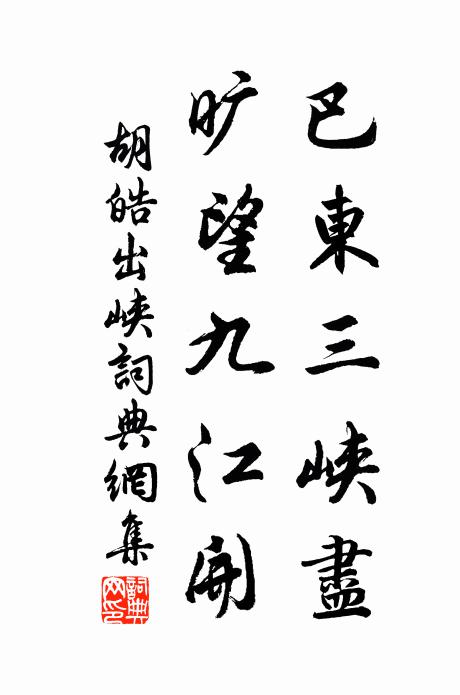 巴東三峽盡
旷望九江開
胡皓出峽詞典網集
詞典网印